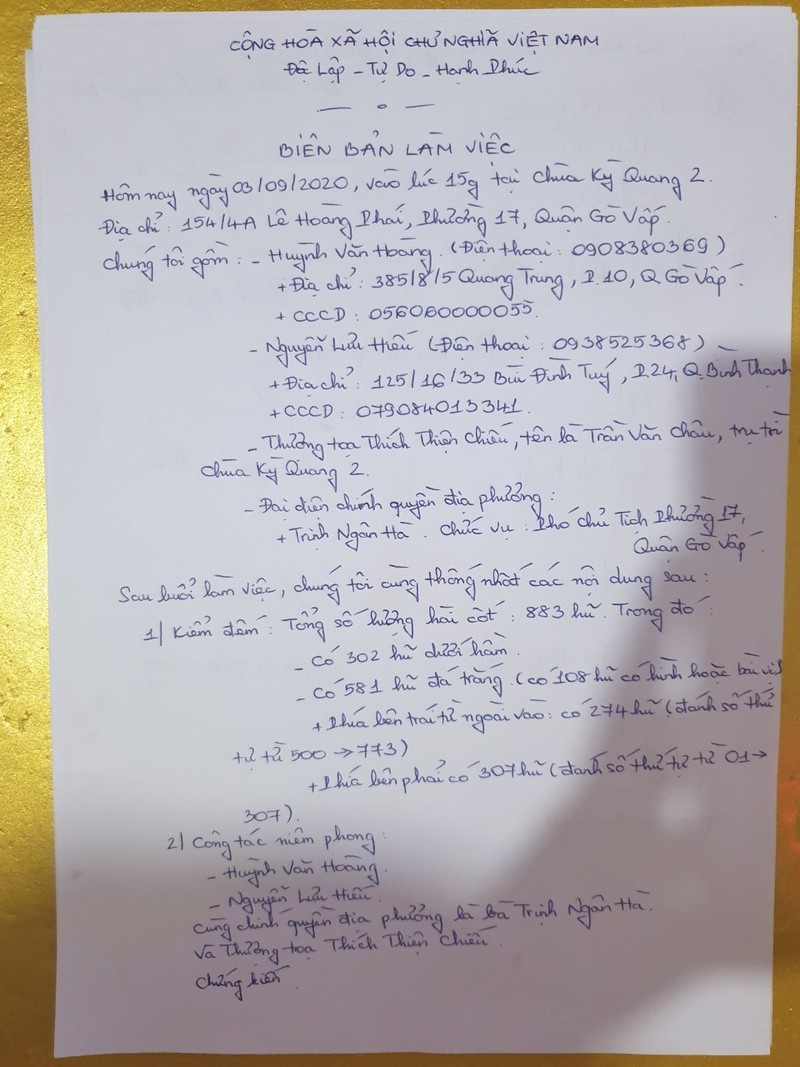 CỘNG HOÀ XÃ HỘI CHỦ NGHĨA VIỆT NAM
Độ Lập - Tự Do - Hạnh Phúc
BIÊN BẢN LÀM VIỆC
Hôm nay ngày 03/09/2020, vào lúc 15g tại chùa Kỳ Quang 2.
Địa chỉ: 154/4A Lê Hoàng Phái, Phường 17, Quận Gò Vấp.
Chúng tôi gồm: - Huỳnh Văn Hoàng. (Điện thoại: 0908380369)
+ Địa chỉ: 385/8/5 Quang Trung, P.10, Q Gò Vấp.
+ CCCD: 056060000055.
- Nguyễn Lưu Hiếu (Điện thoại: 0938525368)
+ Địa chỉ: 125/16/33 Bùi Đình Tuý, P24, Q.Bình Thạnh
+ CCCD: 079084013341.
- Thượng toạ Thích Thiện Chiếu, tên là Trần Văn Châu, trụ trì
chùa Kỳ Quang 2.
- Đại diện chính quyền địa phương:
+ Trịnh Ngân Hà. Chức vụ: Phó chủ Tịch Phường 17,
Quận Gò Vấp.
Sau buổi làm việc, chúng tôi cùng thống nhất các nội dung sau:
1/ Kiểm đếm: Tổng số lượng hài cốt: 883 hũ. Trong đó:
- Có 302 hũ dưới hầm.
- Có 581 hũ đá trắng. (có 108 hũ có hình hoặc bài vị)
+ Phía bên trái từ ngoài vào: có 274 hũ (đánh số thứ
tự từ 500 → 773)
+ Phía bên phải có 307 hũ (đánh số thứ tự từ 01 →
307).
2/ Công tác niêm phong:
- Huỳnh Văn Hoàng.
- Nguyễn Lưu Hiếu.
cùng chính quyền địa phương là bà Trịnh Ngân Hà.
và Thượng toạ Thích Thiện Chiếu.
Chứng kiến.